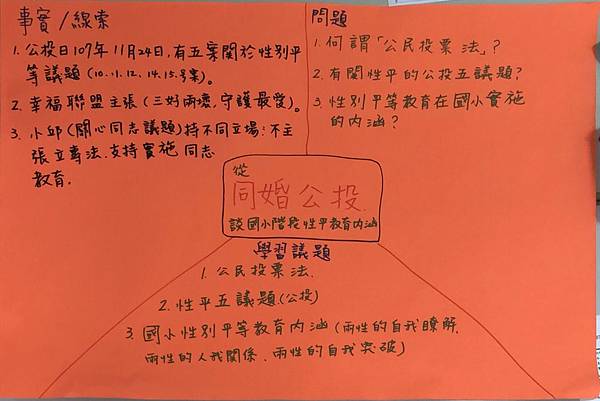 事實/線索
1. 公投日107年11月24日,有五案關於性別平
等議題(10.11.12.14.15.號案)。
2. 幸福聯盟主張(三好兩壞,守護最愛)。
3. 小邱(關心同志議題)持不同立場:不主
張立專法.支持實施同志
教育.
問題
1. 何謂「公民投票法」?
2. 有関性平的公投五議題?
3. 性別平等教育在國小實施
的內涵?
從
同婚公投.
談國小階段性平教育內涵
學習議題
1. 公民投票法.
2. 性平五議題(公投)
3. 國小性別平等教育內涵(兩性的自我瞭解.
兩性的人我關係.兩性的自我突破)